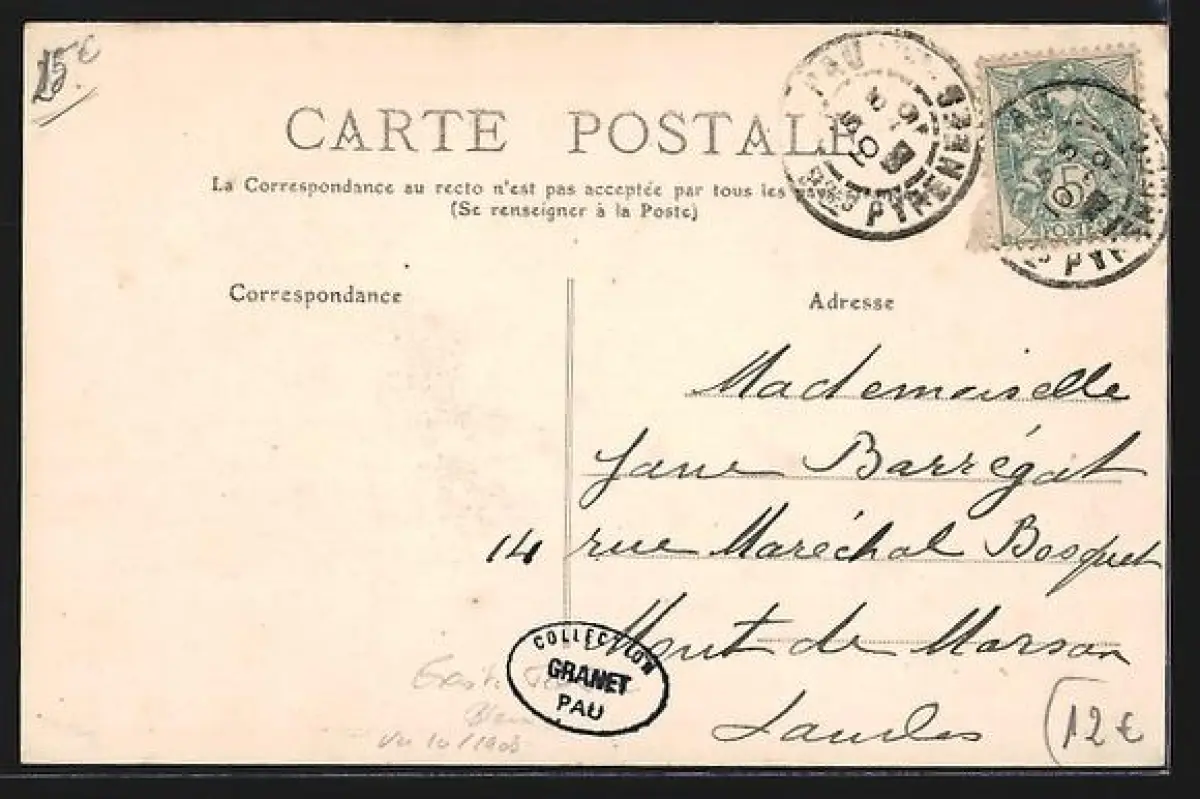 15€
CARTE POSTALE
La Correspondance au recto n'est pas acceptée par tous les
(Se renseigner à la Poste)
PAU
BSES PYRENEES
5
POSTES
Correspondance
Adresse
Mademoiselle
Jane Barrégat
14 rue Maréchal Bosquet
Mont de Marsan
Landes
COLLECTION
GRANET
PAU
12€